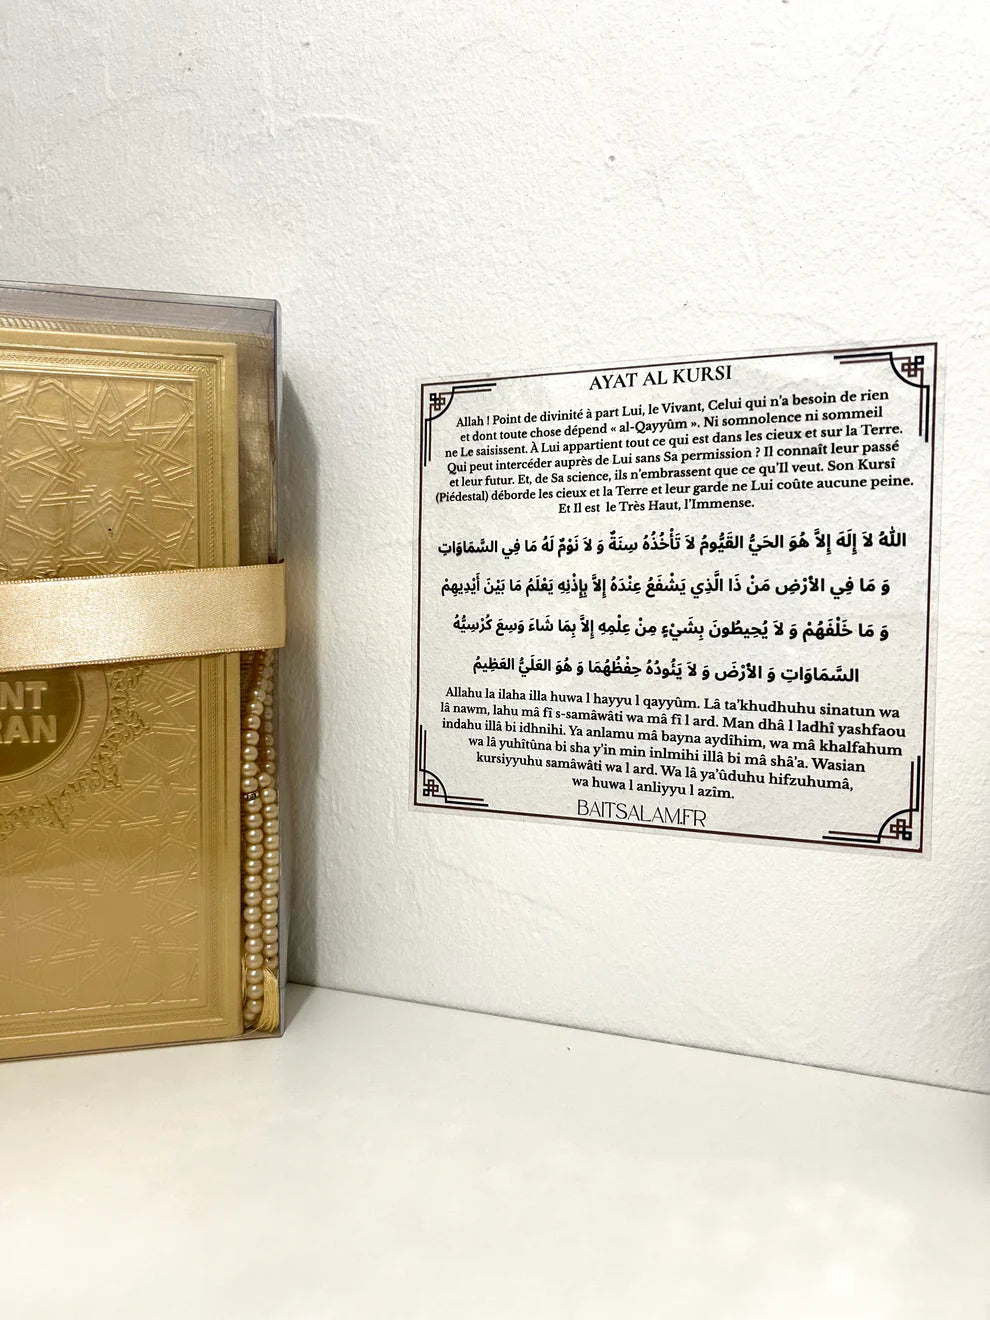 NT
RAN
AYAT AL KURSI
Allah ! Point de divinité à part Lui, le Vivant, Celui qui n'a besoin de rien
et dont toute chose dépend « al-Qayyûm ». Ni somnolence ni sommeil
ne Le saisissent. À Lui appartient tout ce qui est dans les cieux et sur la Terre.
Qui peut intercéder auprès de Lui sans Sa permission ? Il connaît leur passé
et leur futur. Et, de Sa science, ils n'embrassent que ce qu'Il veut. Son Kursî
(Piédestal) déborde les cieux et la Terre et leur garde ne Lui coûte aucune peine.
Et Il est le Très Haut, l'Immense.
اللهُ لاَ إِلَهَ إِلاَّ هُوَ الحَيُّ القَيُّومُ لاَ تَأْخُذُهُ سِنَةٌ وَ لاَ نَوْمٌ لَهُ مَا فِي السَّمَاوَاتِ
وَ مَا فِي الأَرْضِ مَنْ ذَا الَّذِي يَشْفَعُ عِنْدَهُ إِلاَّ بِإِذْنِهِ يَعْلَمُ مَا بَيْنَ أَيْدِيهِمْ
وَ مَا خَلْفَهُمْ وَ لاَ يُحِيطُونَ بِشَيْءٍ مِنْ عِلْمِهِ إِلاَّ بِمَا شَاءَ وَسِعَ كُرْسِيُّهُ
السَّمَاوَاتِ وَ الأَرْضَ وَ لاَ يَئُودُهُ حِفْظُهُمَا وَ هُوَ العَلَيُّ العَظِيمُ
Allahu la ilaha illa huwa l hayyu l qayyûm. Lâ ta'khudhuhu sinatun wa
lâ nawm, lahu mâ fî s-samâwâti wa mâ fî l ard. Man dhâ l ladhî yashfaou
indahu illâ bi idhnihi. Ya anlamu mâ bayna aydîhim, wa mâ khalfahum
wa lâ yuhîtûna bi sha y'in min inlmihi illâ bi mâ shâ'a. Wasian
kursiyyuhu samâwâti wa l ard. Wa lâ ya'ûduhu hifzuhumâ,
wa huwa l anliyyu l azîm.
BAITSALAM.FR